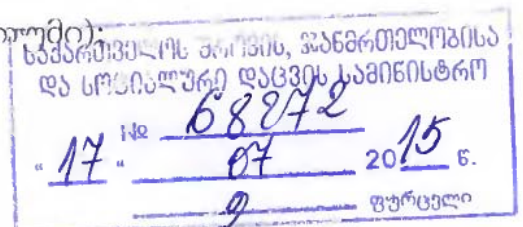 საქართველოს შრომის, ჯანმრთელობისა
და სოციალური დაცვის სამინისტრო
№ 68272
"17" 07 2015 წ.
9 ფურცელი